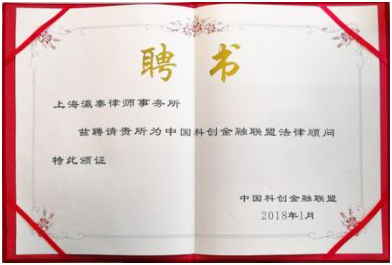 聘书
上海瀛泰律师事务所
兹聘请贵所为中国科创金融联盟法律顾问
特此颁证
中国科创金融联盟
2018年1月